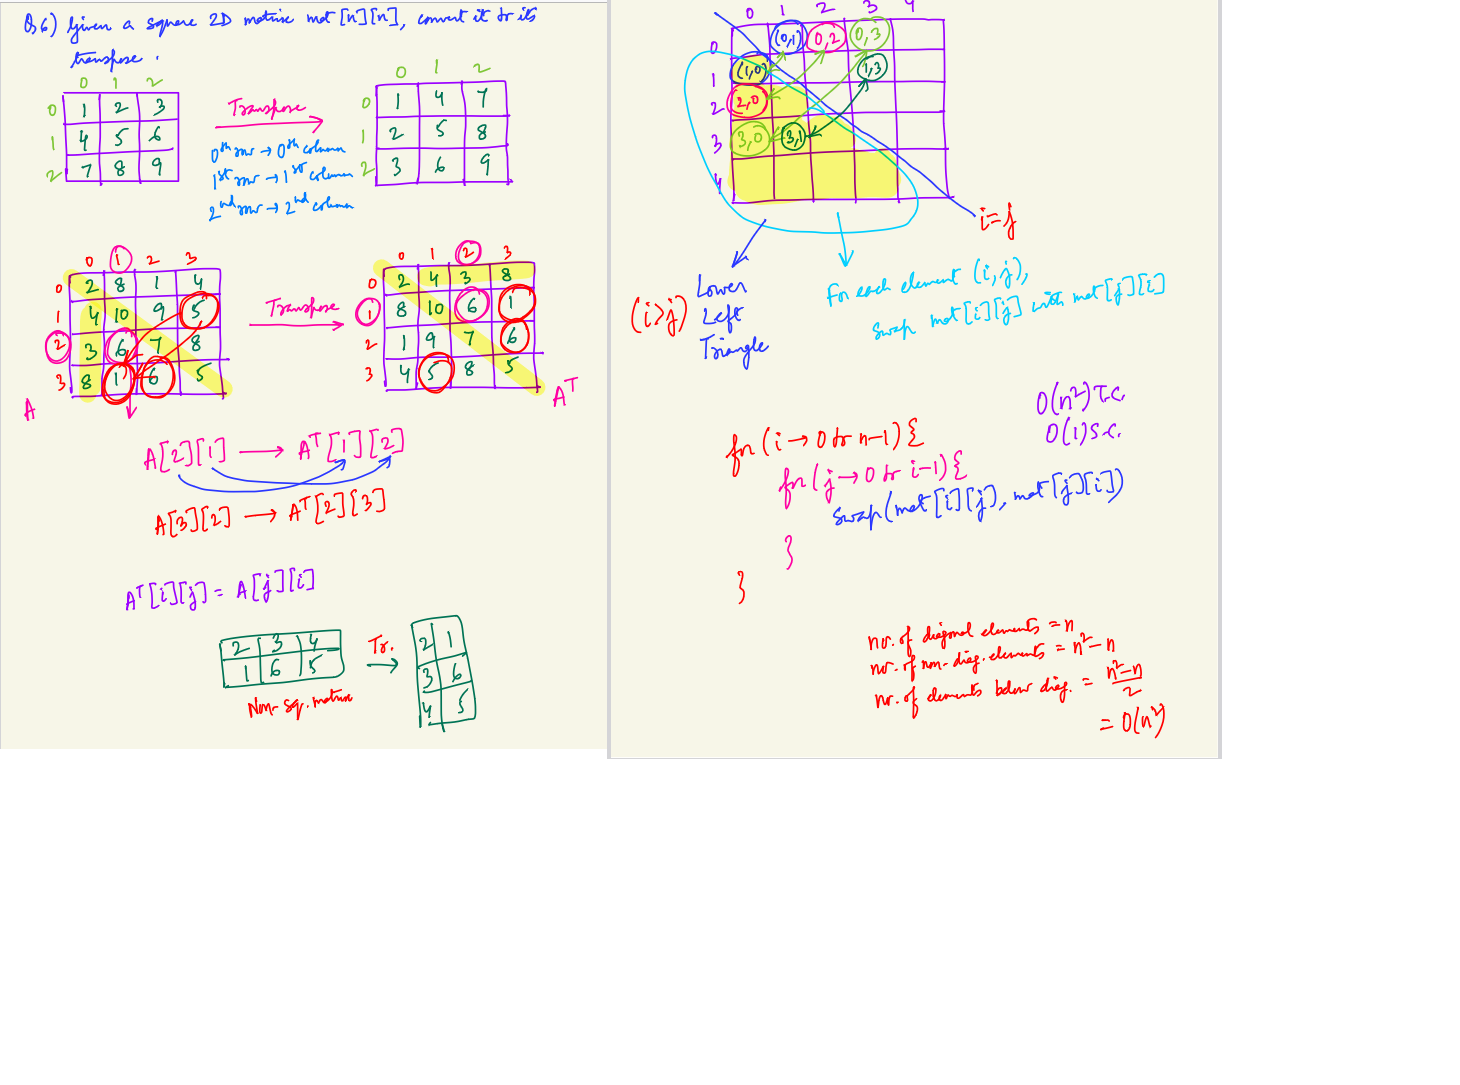 Q.6) Given a square 2D matrix mat[n][n], convert it to its
transpose.
0 1 2
0 1 2 3
1 4 5 6
2 7 8 9
Transpose
0th row → 0th column
1st row → 1st column
2nd row → 2nd column
0 1 2
0 1 4 7
1 2 5 8
2 3 6 9
0 1 2 3
0 2 8 1 4
1 4 10 9 5
2 3 6 7 8
3 8 1 6 5
A
Transpose
0 1 2 3
0 2 4 3 8
1 8 10 6 1
2 1 9 7 6
3 4 5 8 5
A^T
A[2][1] → A^T[1][2]
A[3][2] → A^T[2][3]
A^T[i][j] = A[j][i]
2 3 4
1 6 5
Non-sq. matrix
Tr.
2 1
3 6
4 5
0 1 2 3 4
0 (0,1) 0,2 0,3
1 (1,0) 1,3
2 2,0
3 3,0 3,1
4
i=j
(i>j)
Lower
Left
Triangle
For each element (i,j),
swap mat[i][j] with mat[j][i]
O(n²) T.C.
O(1) S.C.
for (i → 0 to n-1) {
for (j → 0 to i-1) {
swap(mat[i][j], mat[j][i])
}
}
no. of diagonal elements = n
no. of non-diag. elements = n²-n
no. of elements below diag. = n²-n
2
= O(n²)